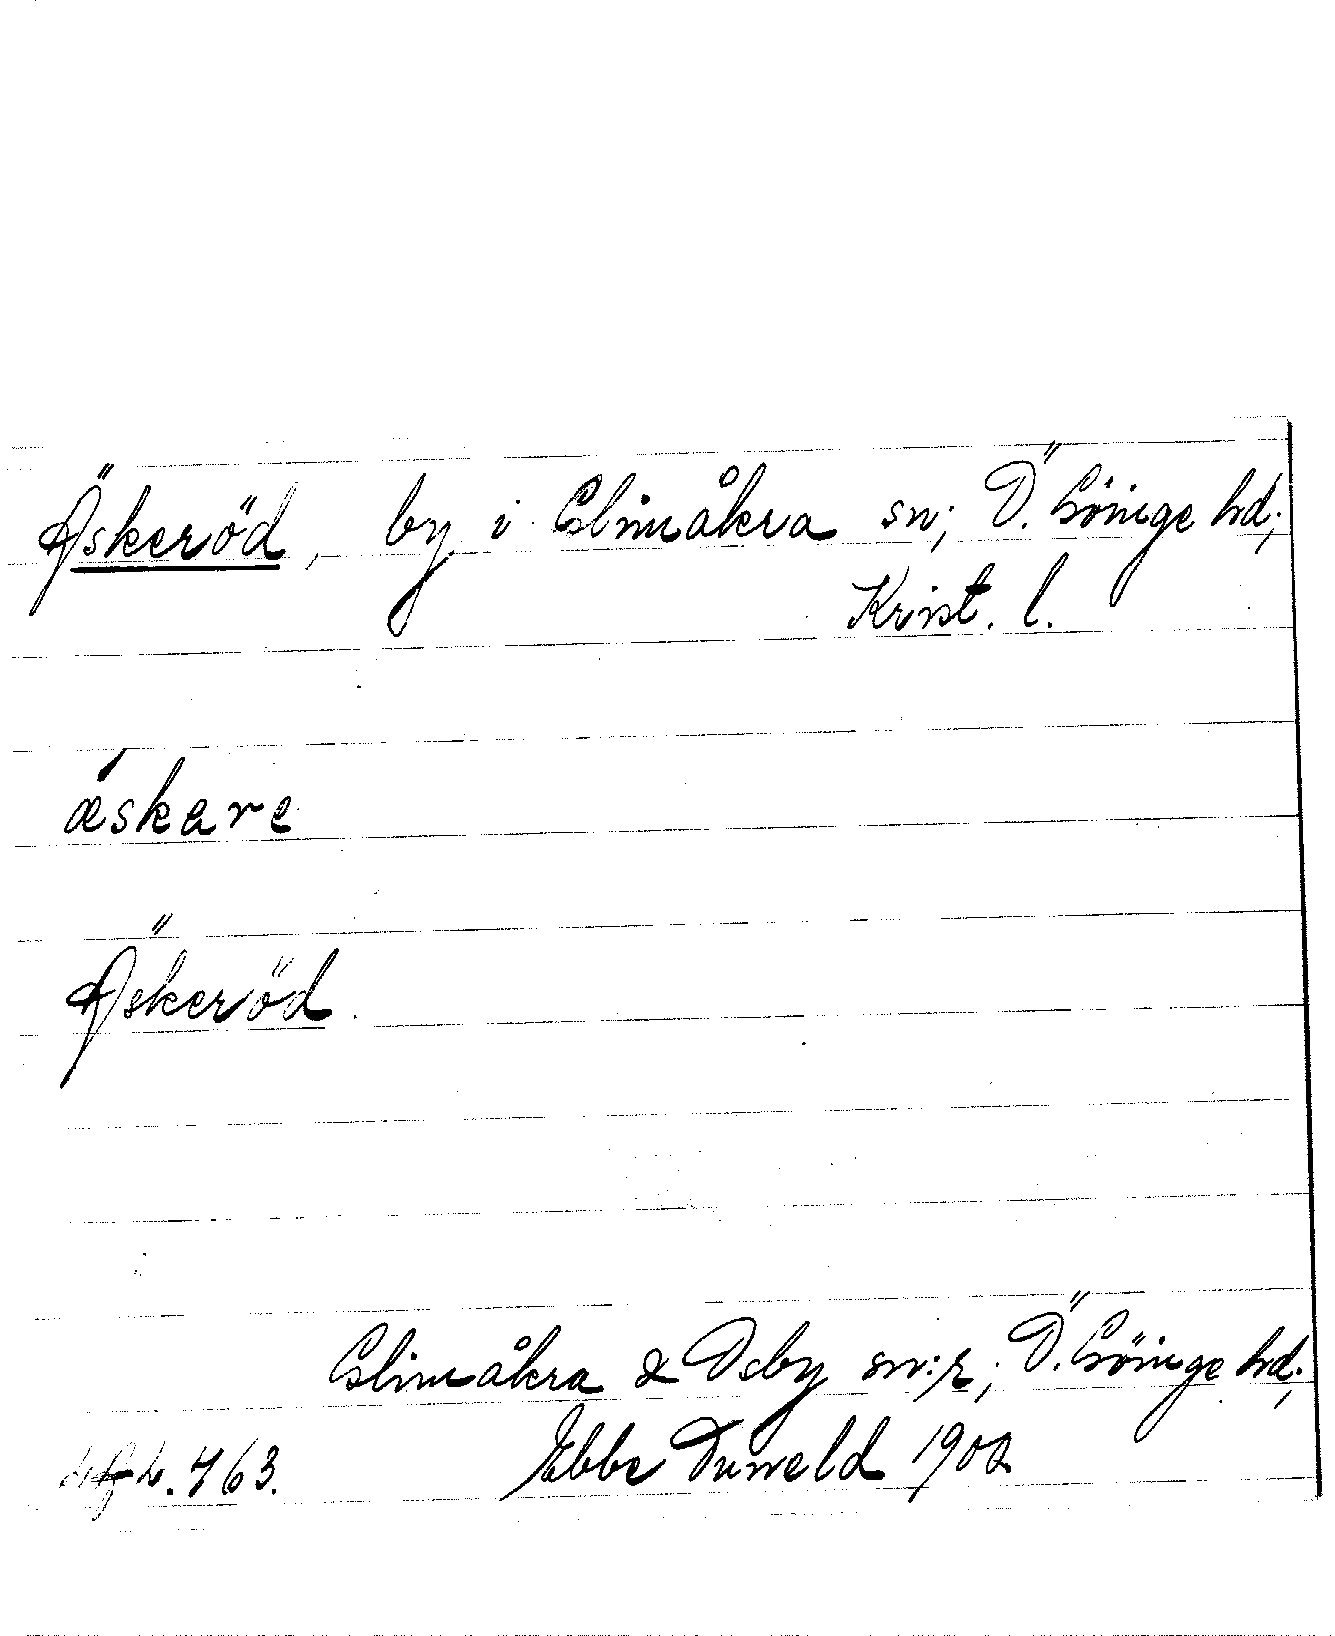 Äskeröd, by i Glimåkra sn; Ö. Göinge hd;
Krist. l.
ǽskare
Äskeröd.
Glimåkra & Osby sn:r; Ö. Göinge hd;
763. Ebbe Tuneld 1902